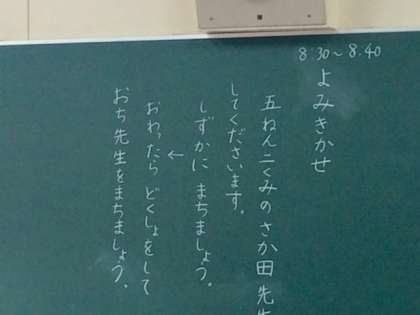 8:30〜8:40
よみきかせ
五ねん二くみのさか田先生
してくださいます。
しずかに まちましょう。
↓
おわったら どくしょをして
おち先生をまちましょう。